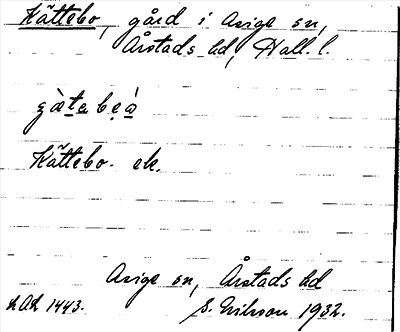 Kättebo, gård i Asige sn,
Årstads hd, Hall. l.
Kättebo. ek.
Asige sn, Årstads hd
1443.
S. Nilsson 1932.